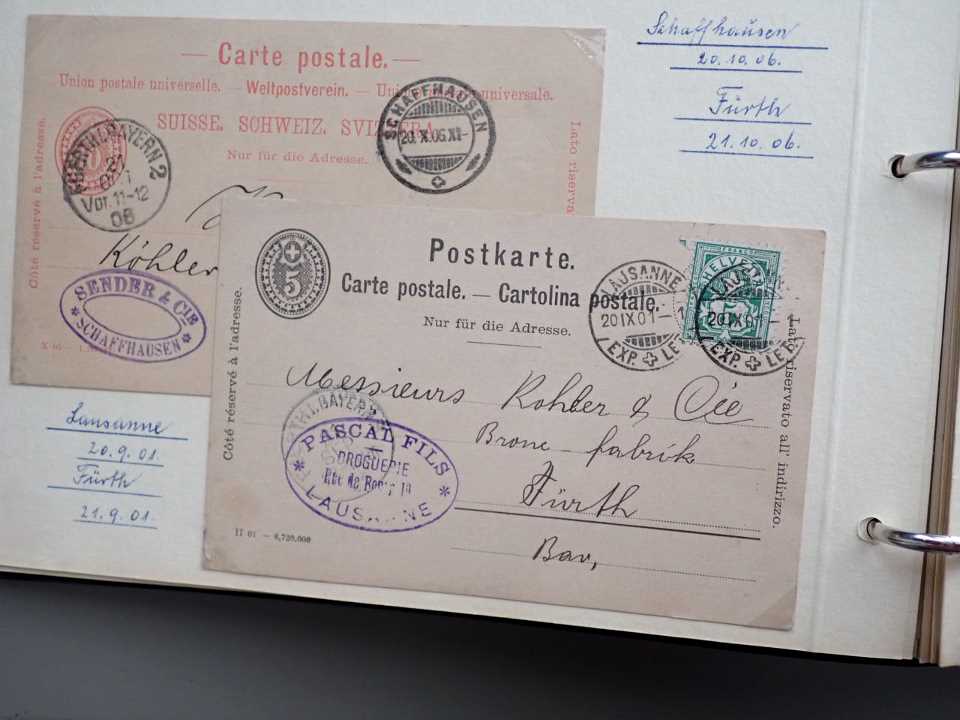 Schaffhausen
20.10.06.
Fürth
21.10.06.
— Carte postale. —
Union postale universelle. — Weltpostverein. —
SUISSE. SCHWEIZ. SVIZZERA
Nur für die Adresse.
Côté réservé à l'adresse.
Lato riserva
SCHAFFHAUSEN
20.X.06.XI-
BAYERN 2
21
Vor.11-12
06
Köhler
SENDER & CIE
SCHAFFHAUSEN
Lausanne
20.9.01.
Fürth
21.9.01.
5
Postkarte.
Carte postale. — Cartolina postale.
Nur für die Adresse.
Côté réservé à l'adresse.
Lato riservato all' indirizzo.
LAUSANNE
20 IX 01
EXP. LE
HELVETIA
LAUS
20 IX 01
EXP. LE
Messieurs Kohler & Cie
Bronc fabrik
Fürth
Bav,
BAYERN
PASCAL FILS
DROGUERIE
LAUSANNE
II 01 — 6,720,000